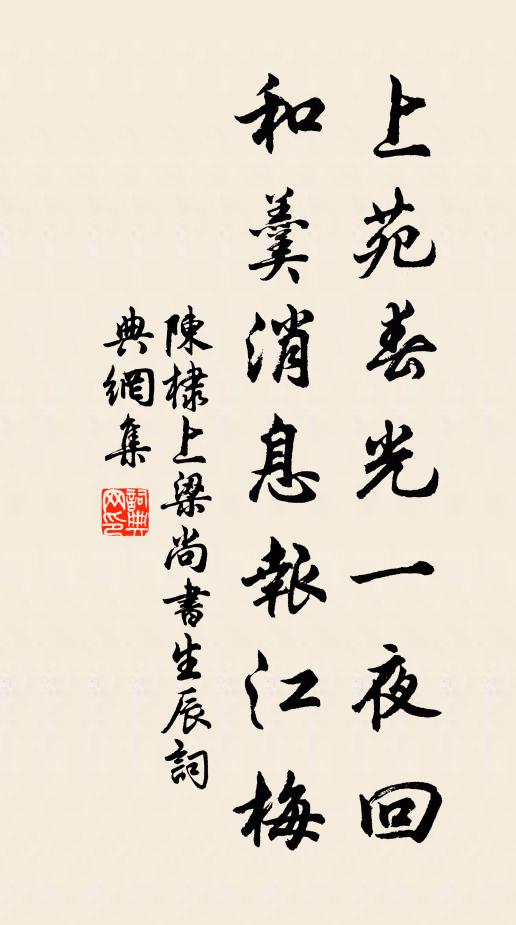 上苑春光一夜回
和羹消息報江梅
陳棣上梁尚書生辰詞
典網集
詞典網印